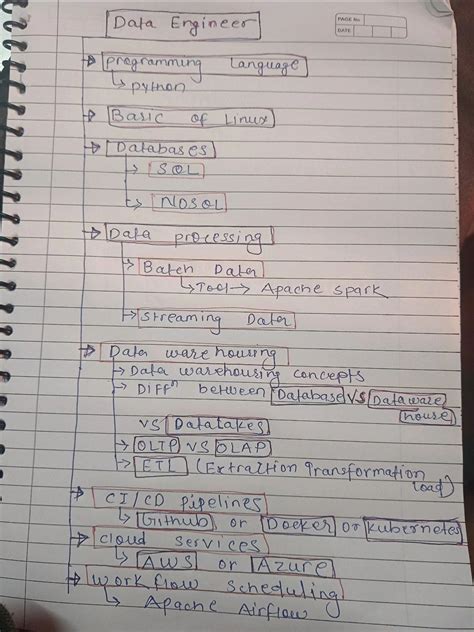 Data Engineer
PAGE No.
DATE
programming language
python
Basic of Linux
Databases
SQL
NOSQL
Data processing
Batch Data
Tool → Apache spark
Streaming Data
Data warehousing
Data warehousing concepts
Diffⁿ between Database VS Dataware
house
VS Datalakes
OLTP VS OLAP
ETL (Extraction Transformation
load)
CI/CD pipelines
Github or Docker or kubernetes
cloud services
AWS or Azure
work flow scheduling
Apache Airflow